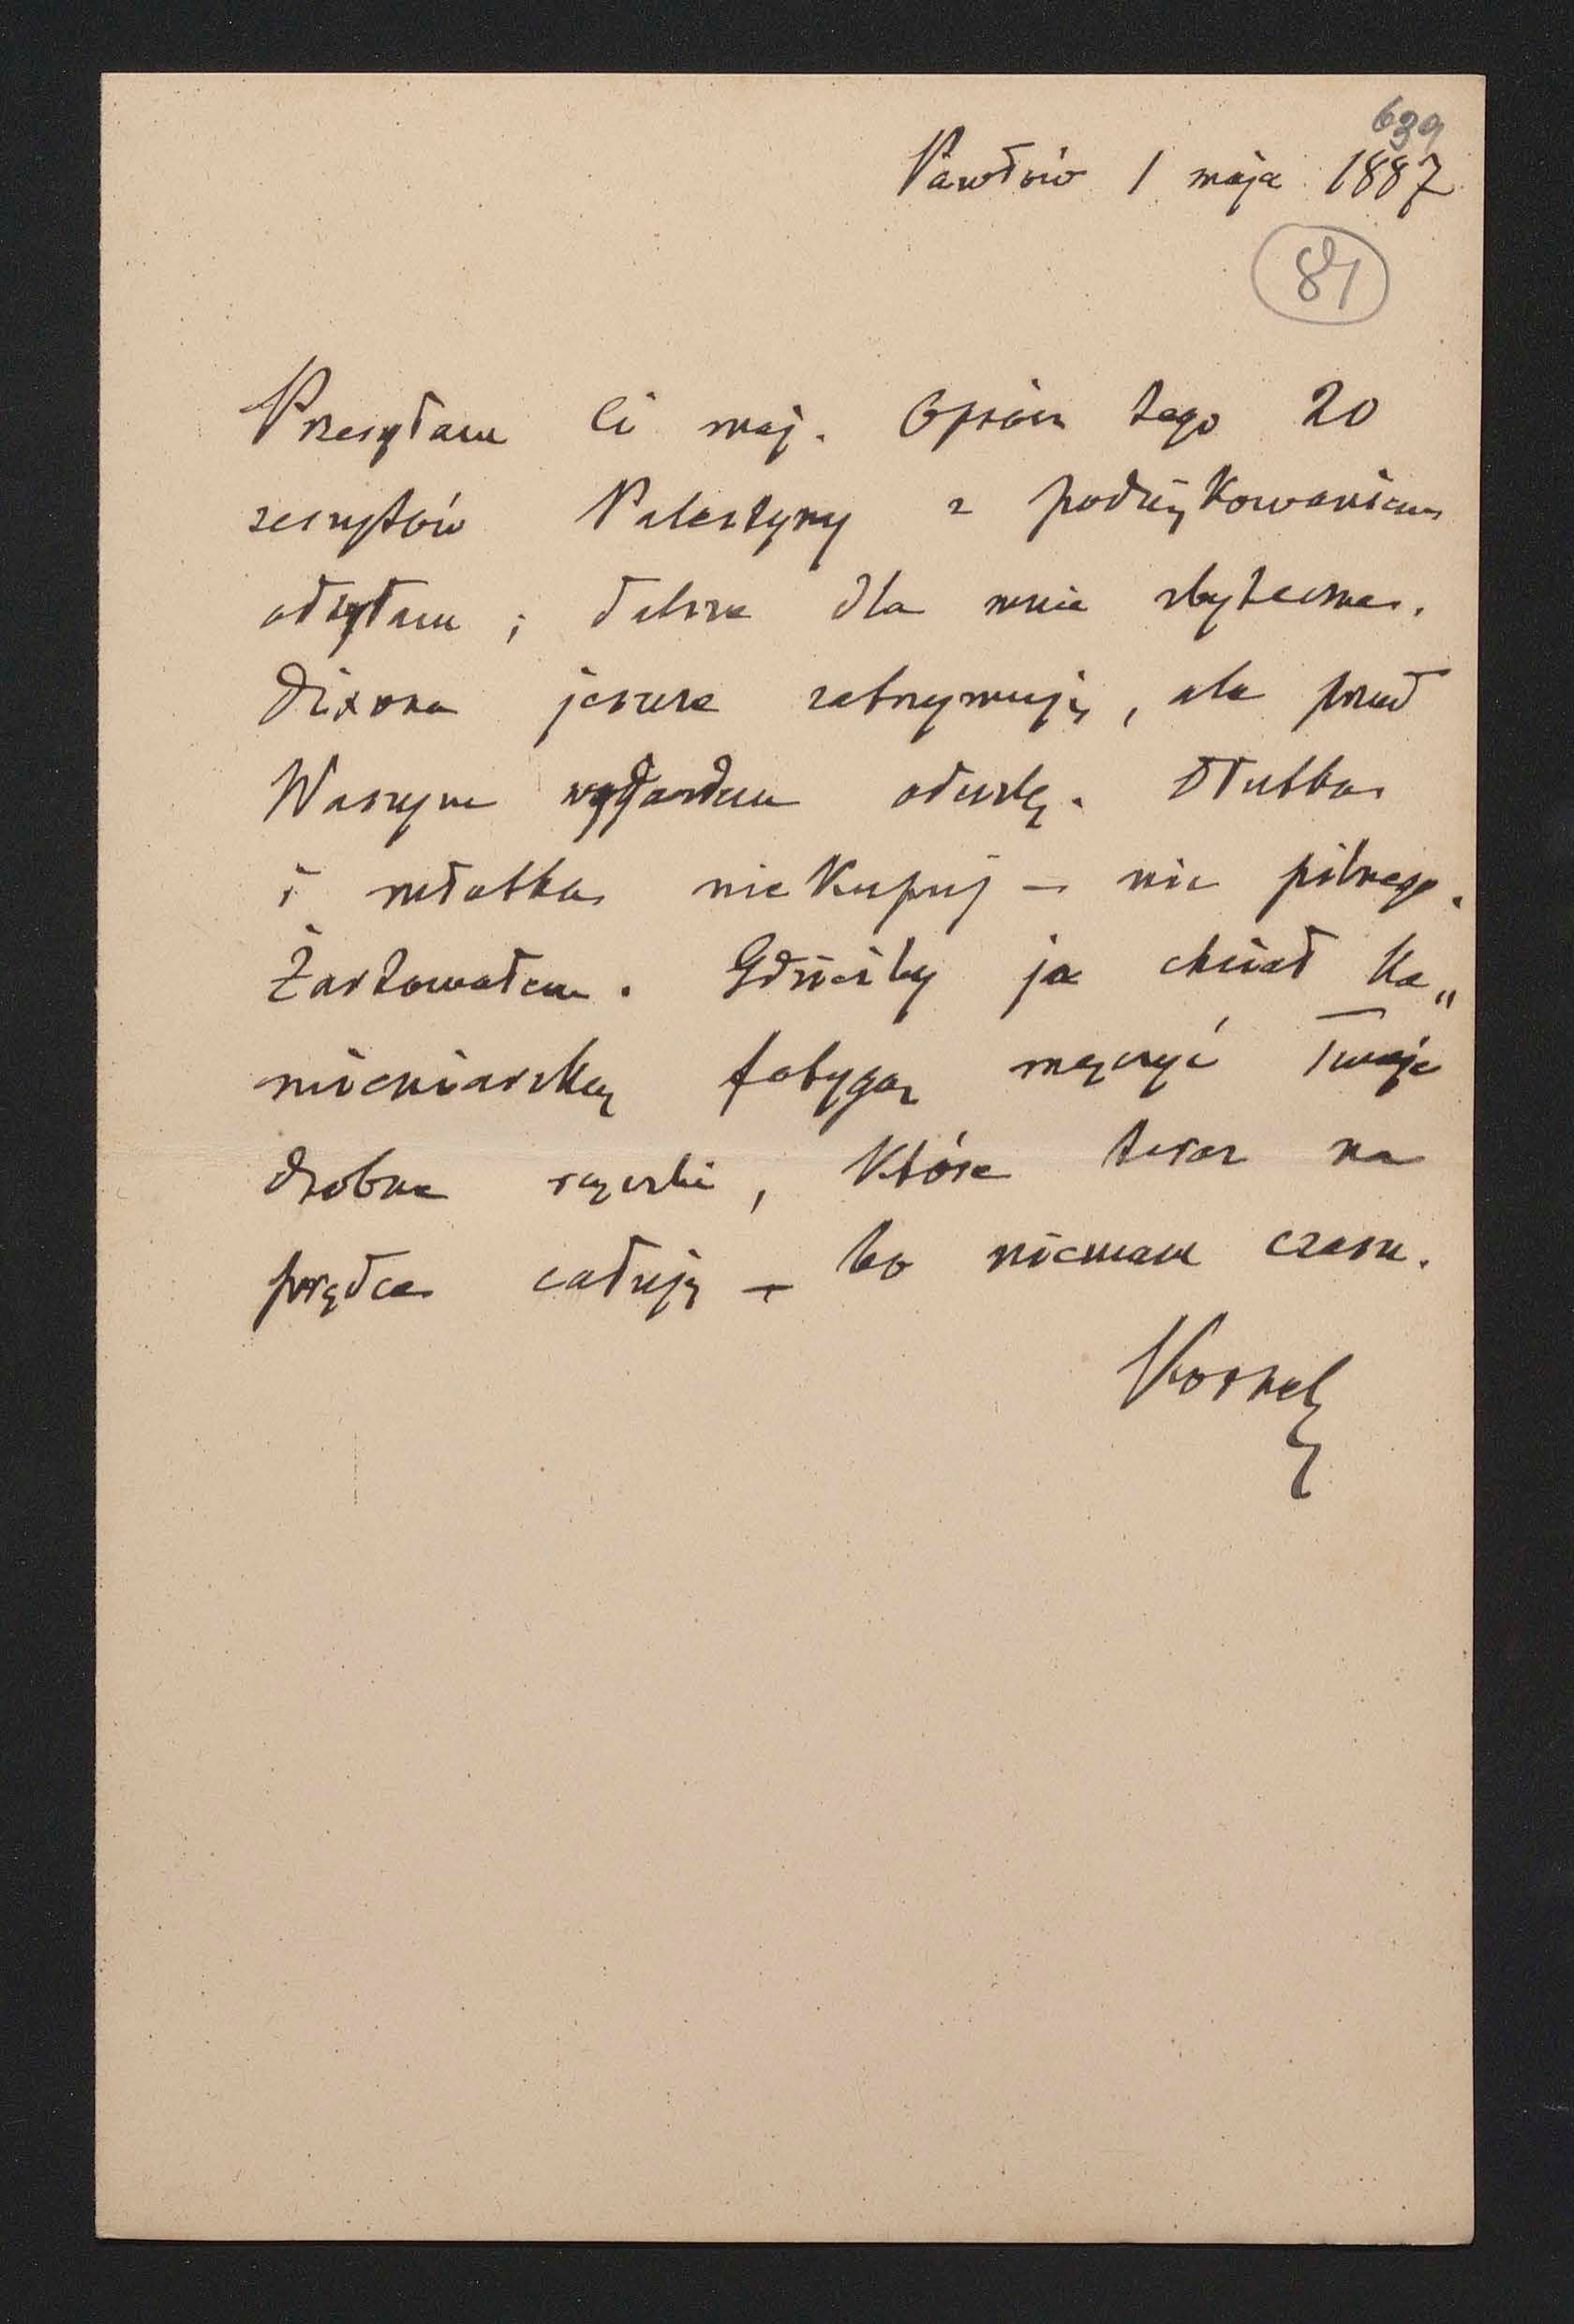 639
Pawłów 1 maja 1887
84
Przesyłam Ci maj. Oprócz tego 20
zeszytów Palestyny z podziękowaniem
odsyłam; dalsze dla mnie zbyteczne.
Dixona jeszcze zatrzymuję, ale przed
Waszym wyjazdem odeszlę. Dłutka
i młotka nie kupuj — nic pilnego.
Żartowałem. Gdzieżby ja chciał ka„
mieniarską fatygą męczyć Twoje
drobne rączki, które teraz na
prędce całuję — bo niemam czasu.
Kornel